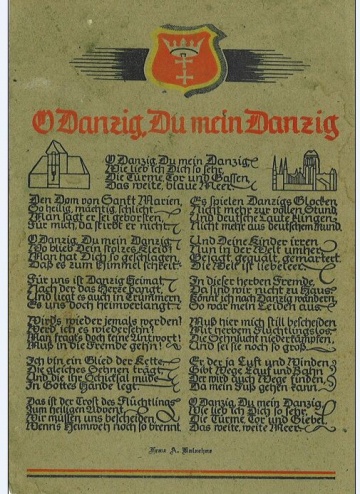 O Danzig, Du mein Danzig
O Danzig, Du mein Danzig
Wie lieb ich Dich so sehr,
Die Türme Tor und Gassen,
Das weite, blaue Meer.
Den Dom von Sankt Marien,
So heilig, mächtig, schlicht.
Man sagt er sei geborsten,
Für mich, da stirbt er nicht.
O Danzig, Du mein Danzig
Wo blieb Dein stolzes Kleid?
Man hat Dich so geschlagen,
Daß es zum Himmel schreit
Für uns ist Danzig Heimat
Nach der das Herze bangt,
Und liegt es auch in Trümmern,
Es uns doch heimverlangt
Wird's wieder jemals werden?
Werd ich es wiederseh'n?
Man fragt's doch keine Antwort
Muß in die Fremde geh'n!
Ich bin ein Glied der Kette,
Die gleiches Sehnen trägt,
Und die ihr Schicksal müde
In Gottes Hände legt.
Das ist der Trost des Flüchtlings
Zum heiligen Advent.
Wir müssen uns bescheiden,
Wenn's Heimweh noch so brennt.
Es spielen Danzigs Glocken
Nicht mehr zur vollen Stund
Und Deutsche Laute klingen
Nicht mehr aus deutschem Mund.
Und Deine Kinder irren
Nun in der Welt umher
Gejagt, gequält, gemartert,
Die Welt ist liebeleer.
In dieser herben Fremde,
Da sind wir nicht zu Haus.
Könnt ich nach Danzig wandern,
So wär mein Leiden aus.
Muß hier mich still bescheiden
Mit herbem Flüchtlingslos.
Die Sehnsucht niederkämpfen,
Und sei sie noch so groß.
Er der ja Luft und Winden
Gibt Wege Lauf und Bahn
Der wird auch Wege finden,
Da mein Fuß gehen kann.
O Danzig, Du mein Danzig
Wie lieb ich Dich so sehr,
Die Türme Tor und Giebel,
Das weite, weite Meer.
A.